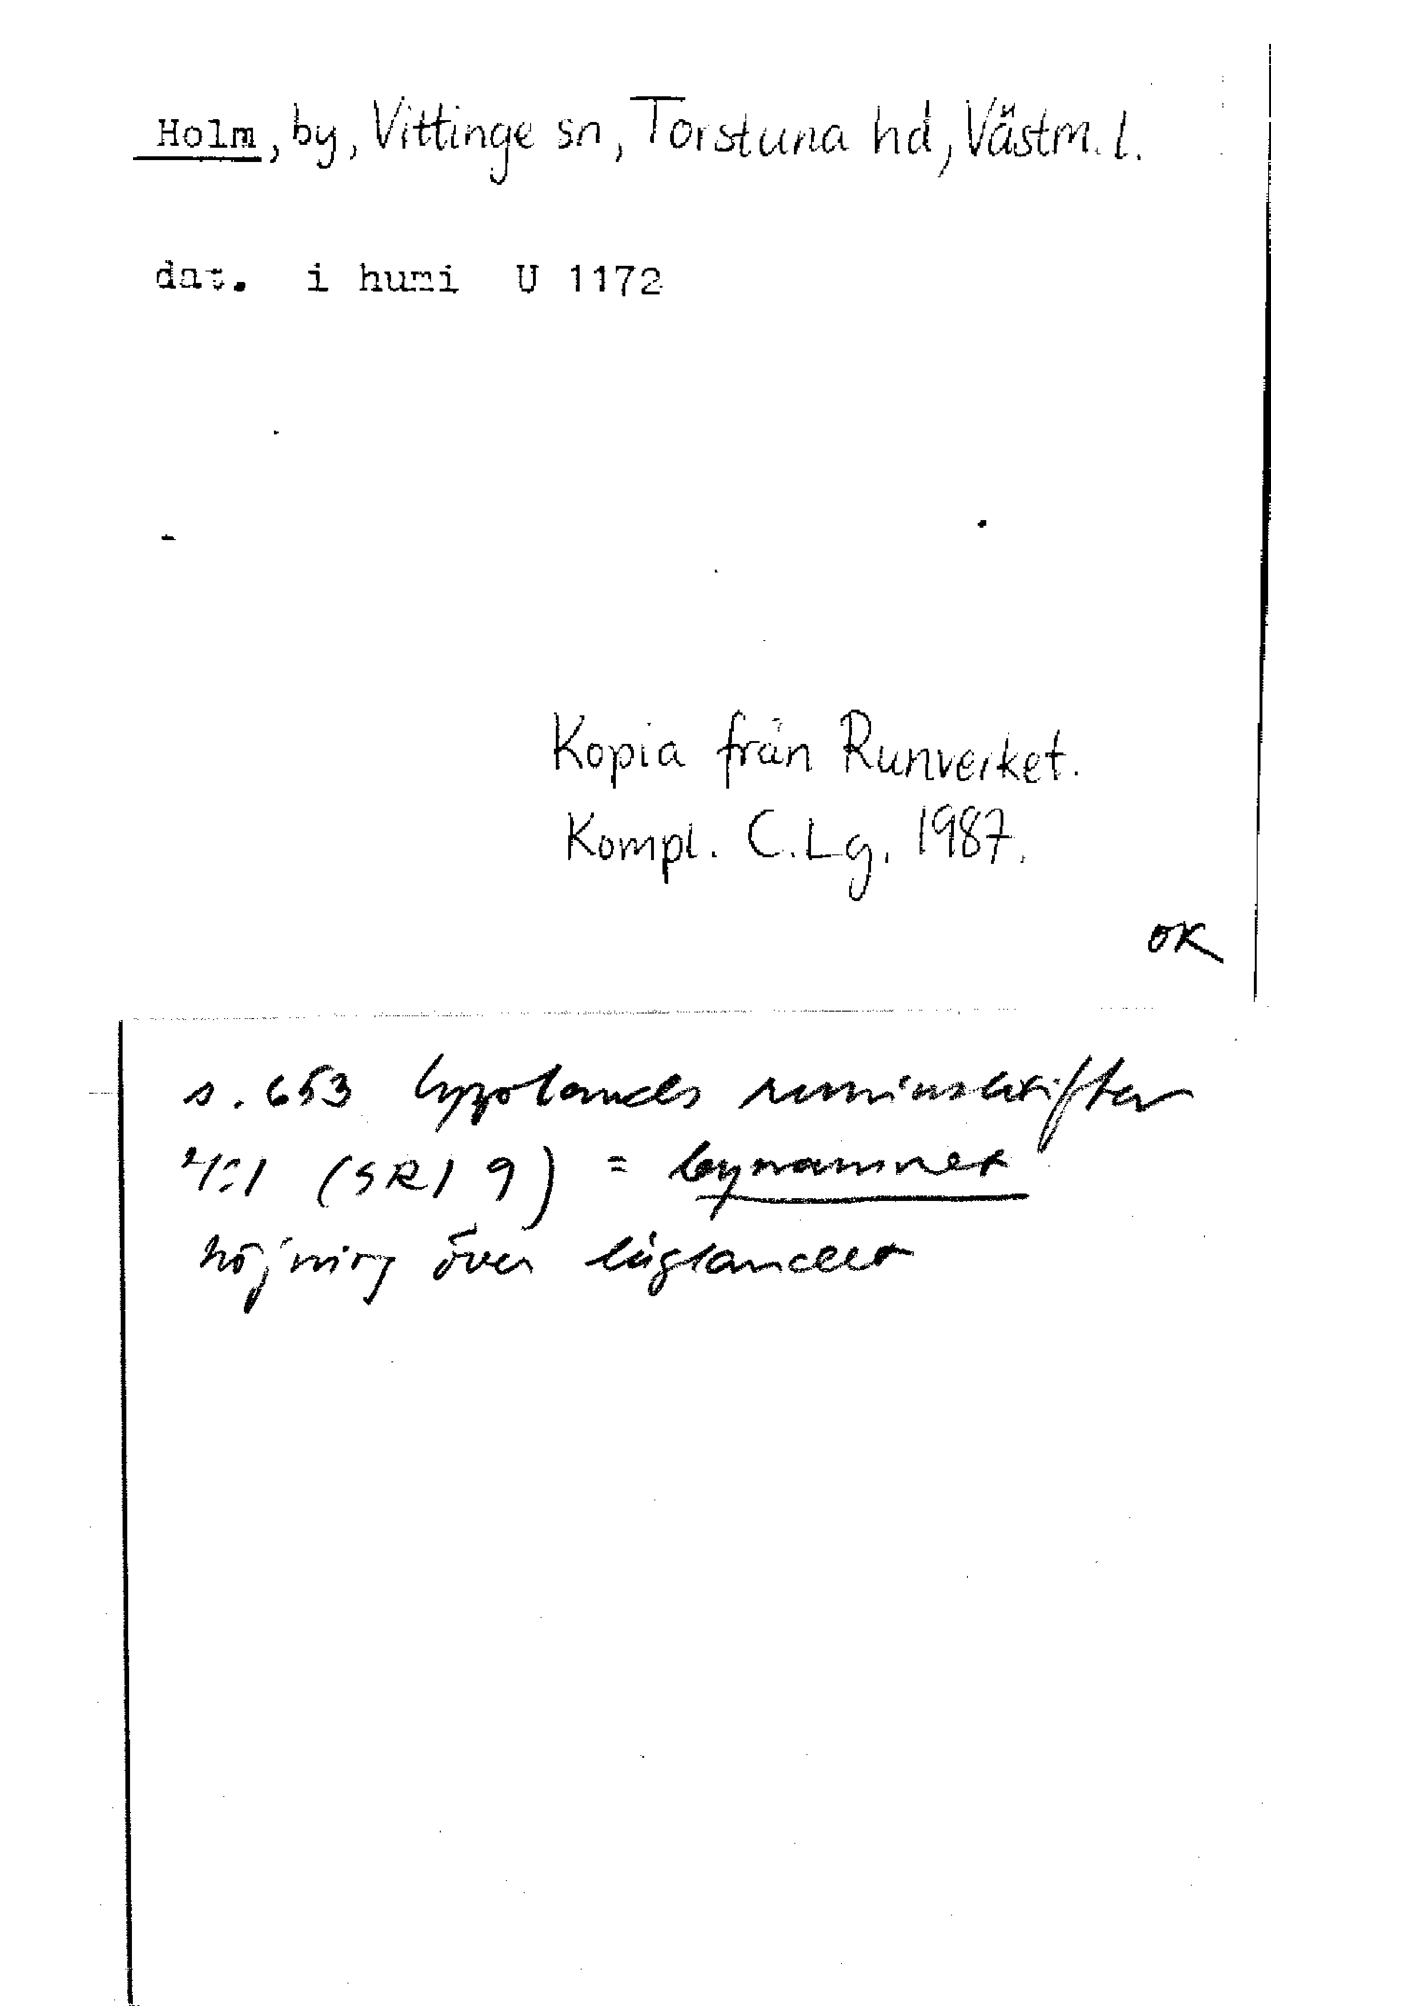 Holm, by, Vittinge sn, Torstuna hd, Västm. l.
dat. i humi U 1172
Kopia från Runverket.
Kompl. C.Lg. 1987.
OK
s. 653 Upplands runinskrifter
4:1 (SRI 9) = bynamnet
höjning över låglandet